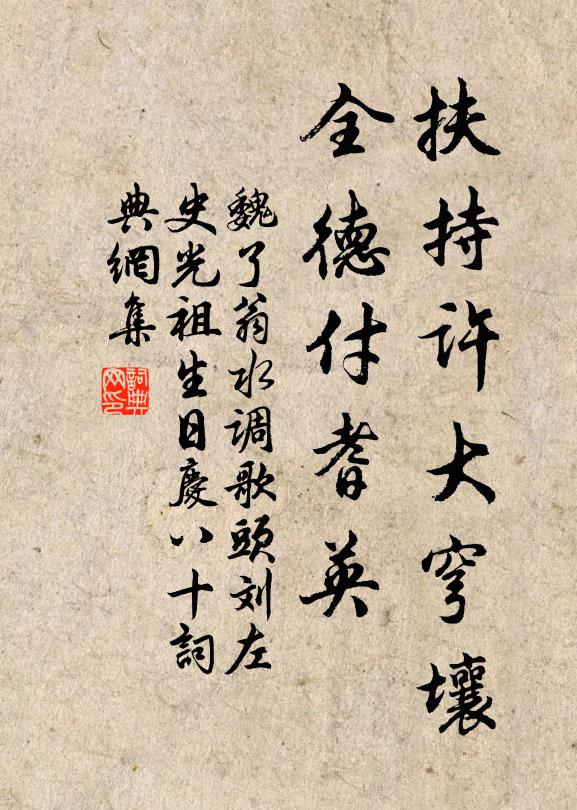 扶持许大穹壤
全德付耆英
魏了翁水调歌头刘左
史光祖生日慶八十詞
典網集
詞典
网印